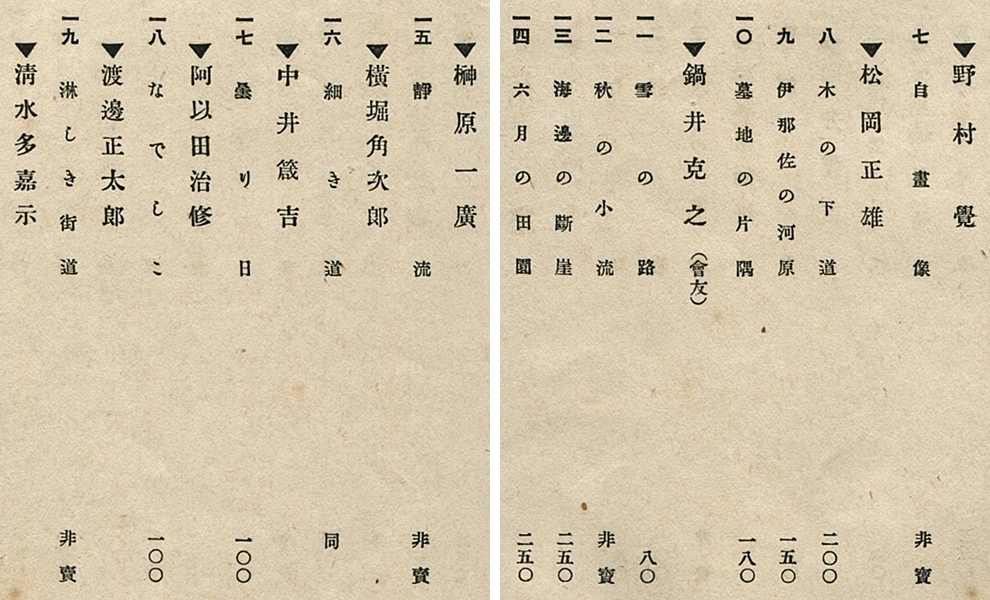 ▼野村覺
七 自畫像 非賣
▼松岡正雄
八 木の下道 二〇〇
九 伊那佐の河原 一五〇
一〇 墓地の片隅 一八〇
▼鍋井克之（會友）
一一 雪の路 八〇
一二 秋の小流 非賣
一三 海邊の斷崖 二五〇
一四 六月の田園 二五〇
▼榊原一廣
一五 靜流 非賣
▼橫堀角次郎
一六 細き道 同
▼中井箴吉
一七 曇り日 一〇〇
▼阿以田治修
一八 なでしこ 一〇〇
▼渡邊正太郎
一九 淋しき街道 非賣
▼淸水多嘉示